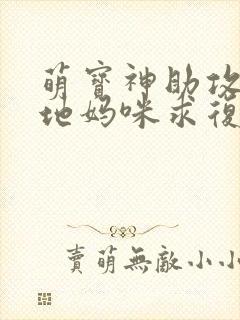 萌寶神助攻
地媽咪求復
賣萌無敵小小